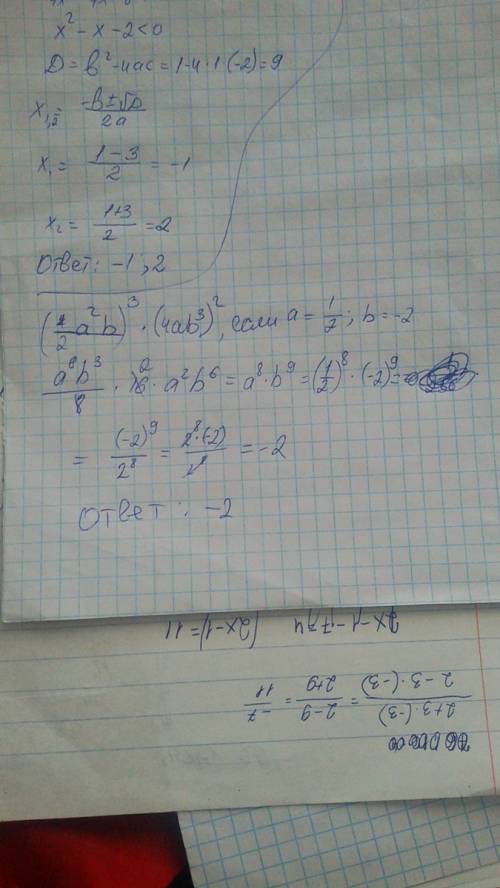 x² - x - 2 < 0
D = b² - 4ac = 1 - 4 · 1 · (-2) = 9
x₁,₂ = (-b ± √D) / 2a
x₁ = (1 - 3) / 2 = -1
x₂ = (1+3) / 2 = 2
Ответ: -1 ; 2
(1/2 a² b)³ · (4ab³)², если a = 1/2 ; b = -2
a⁶b³ / 8 · 16 2 · a²b⁶ = a⁸ · b⁹ = (1/2)⁸ · (-2)⁹ =
= (-2)⁹ / 2⁸ = 2⁸·(-2) / 2⁸ = -2
Ответ : -2
|2x-1| = 11
(2 + 3 · (-3)) / (2 - 3 · (-3)) = (2 - 9) / (2+9) = -7 / 11